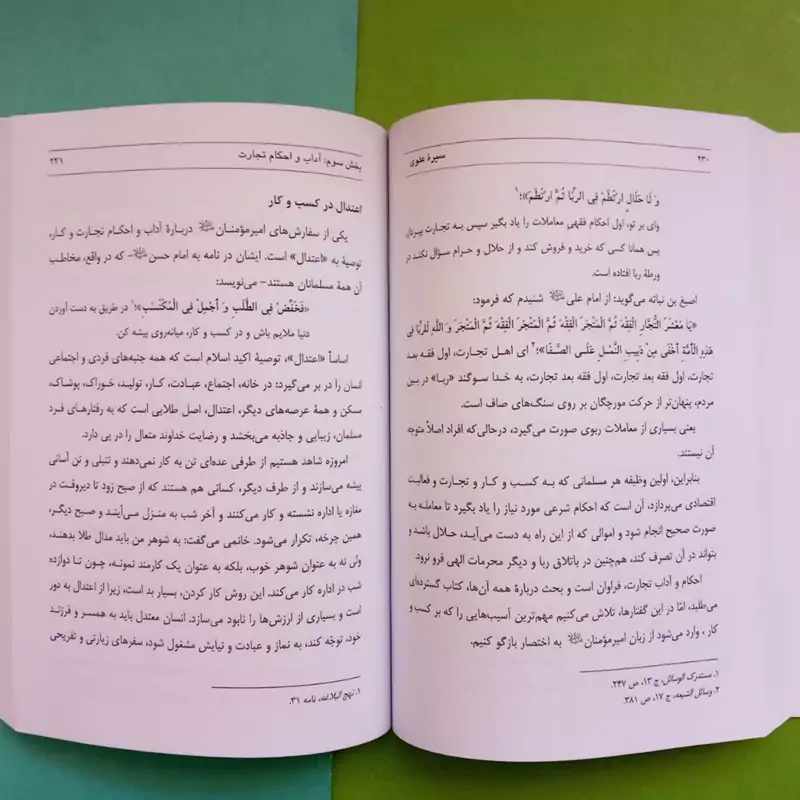 ۲۳۰
سیرهٔ علوی
وَ لَا حَلَالٍ ارْتَطَمَ فِی الرِّبَا ثُمَّ ارْتَطَمَ»؛۱
وای بر تو، اول احکام فقهی معاملات را یاد بگیر سپس به تجارت بپرداز،
پس همانا کسی که خرید و فروش کند و از حلال و حرام سؤال نکند در
ورطهٔ ربا افتاده است.
اصبغ بن نباته می‌گوید: از امام علی شنیدم که فرمود:
«یَا مَعْشَرَ التُّجَّارِ الْفِقْهَ ثُمَّ الْمَتْجَرَ الْفِقْهَ ثُمَّ الْمَتْجَرَ الْفِقْهَ ثُمَّ الْمَتْجَرَ وَ اللَّهِ لَلرِّبَا فِی
هَذِهِ الْأُمَّةِ أَخْفَی مِنْ دَبِیبِ النَّمْلِ عَلَی الصَّفَا»؛۲ ای اهل تجارت، اول فقه بعد
تجارت، اول فقه بعد تجارت، اول فقه بعد تجارت، به خدا سوگند «ربا» در بین
مردم، پنهان‌تر از حرکت مورچگان بر روی سنگ‌های صاف است.
یعنی بسیاری از معاملات ربوی صورت می‌گیرد، درحالی‌که افراد اصلاً متوجه
آن نیستند.
بنابراین، اولین وظیفه هر مسلمانی که به کسب و کار و تجارت و فعالیت
اقتصادی می‌پردازد، آن است که احکام شرعی مورد نیاز را یاد بگیرد تا معامله به
صورت صحیح انجام شود و اموالی که از این راه به دست می‌آید، حلال باشد و
بتواند در آن تصرف کند، هم‌چنین در باتلاق ربا و دیگر محرمات الهی فرو نرود.
احکام و آداب تجارت، فراوان است و بحث دربارهٔ همه آن‌ها، کتاب گسترده‌ای
می‌طلبد، امّا در این گفتارها، تلاش می‌کنیم مهم‌ترین آسیب‌هایی را که بر کسب و
کار ، وارد می‌شود از زبان امیرمؤمنان به اختصار بازگو کنیم.
۱. مستدرک الوسائل، ج ۱۳، ص ۲۴۷.
۲. وسائل الشیعه، ج ۱۷، ص ۳۸۱.
بخش سوم: آداب و احکام تجارت
۲۳۱
اعتدال در کسب و کار
یکی از سفارش‌های امیرمؤمنان دربارهٔ آداب و احکام تجارت و کار،
توصیهٔ به «اعتدال» است. ایشان در نامه به امام حسن - که در واقع، مخاطب
آن همهٔ مسلمانان هستند- می‌نویسد:
«فَخَفِّضْ فِی الطَّلَبِ وَ أَجْمِلْ فِی الْمُکْتَسَبِ»؛۱ در طریق به دست آوردن
دنیا ملایم باش و در کسب و کار، میانه‌روی پیشه کن.
اساساً «اعتدال»، توصیهٔ اکید اسلام است که همه جنبه‌های فردی و اجتماعی
انسان را در بر می‌گیرد: در خانه، اجتماع، عبادت، کار، تولید، خوراک، پوشاک،
مسکن و همهٔ عرصه‌های دیگر، اعتدال، اصل طلایی است که به رفتارهای فرد
مسلمان، زیبایی و جاذبه می‌بخشد و رضایت خداوند متعال را در پی دارد.
امروزه شاهد هستیم از طرفی عده‌ای تن به کار نمی‌دهند و تنبلی و تن آسانی
پیشه می‌سازند و از طرف دیگر، کسانی هم هستند که از صبح زود تا دیروقت در
مغازه یا اداره نشسته و کار می‌کنند و آخر شب به منزل می‌آیند و صبح دیگر،
همین چرخه، تکرار می‌شود. خانمی می‌گفت: به شوهر من باید مدال طلا بدهند،
ولی نه به عنوان شوهر خوب، بلکه به عنوان یک کارمند نمونه، چون تا دوازده
شب در اداره کار می‌کند. این روش کار کردن، بسیار بد است، زیرا از اعتدال به دور
است و بسیاری از ارزش‌ها را نابود می‌سازد. انسان معتدل باید به همسر و فرزند
خود، توجّه کند، به نماز و عبادت و نیایش مشغول شود، سفرهای زیارتی و تفریحی
۱. نهج البلاغه، نامه ۳۱.